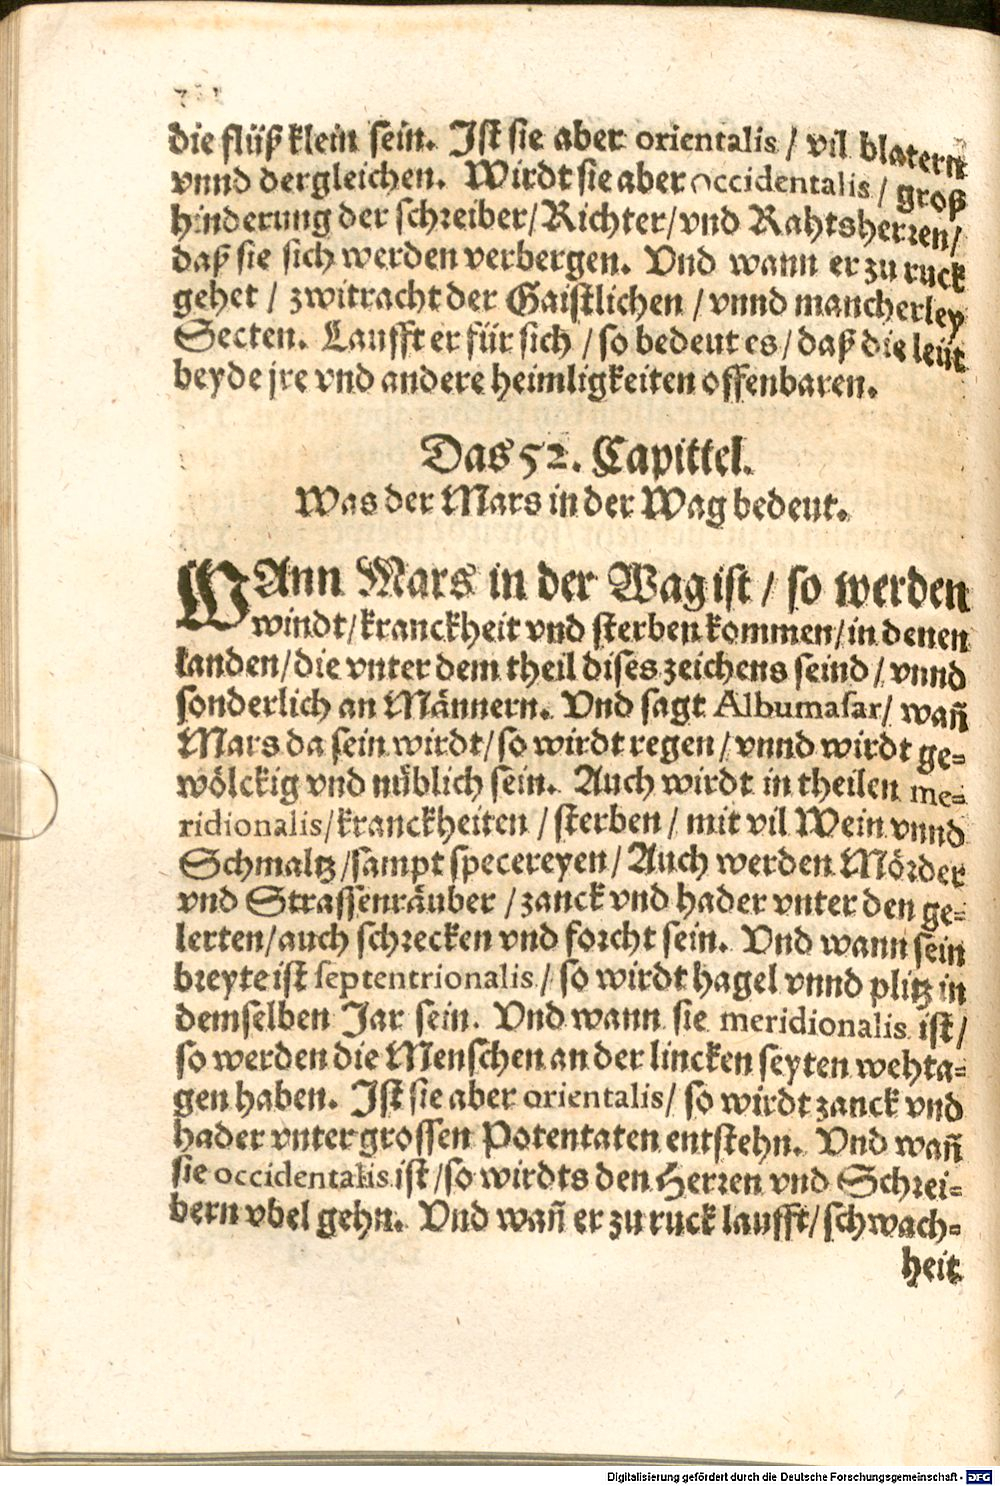 die flüß klein sein. Ist sie aber orientalis / vil blatern
vnnd dergleichen. Wirdt sie aber occidentalis / groß
hinderung der schreiber / Richter / vnd Rahtsherren /
daß sie sich werden verbergen. Vnd wann er zu ruck
gehet / zwitracht der Gaistlichen / vnnd mancherley
Secten. Laufft er für sich / so bedeut es / daß die leüt
beyde jre vnd andere heimligkeiten offenbaren.
Das 52. Capittel.
Was der Mars in der Wag bedeut.
WAnn Mars in der Wag ist / so werden
windt / kranckheit vnd sterben kommen / in denen
landen / die vnter dem theil dises zeichens seind / vnnd
sonderlich an Männern. Vnd sagt Albumasar / wañ
Mars da sein wirdt / so wirdt regen / vnnd wirdt ge-
wölckig vnd nüblich sein. Auch wirdt in theilen me-
ridionalis / kranckheiten / sterben / mit vil Wein vnnd
Schmaltz / sampt specereyen / Auch werden Mörder
vnd Strassenräuber / zanck vnd hader vnter den ge-
lerten / auch schrecken vnd forcht sein. Vnd wann sein
breyte ist septentrionalis / so wirdt hagel vnnd plitz in
demselben Jar sein. Vnd wann sie meridionalis ist /
so werden die Menschen an der lincken seyten wehta-
gen haben. Ist sie aber orientalis / so wirdt zanck vnd
hader vnter grossen Potentaten entstehn. Vnd wañ
sie occidentalis ist / so wirdts den Herren vnd Schrei-
bern vbel gehn. Vnd wañ er zu ruck laufft / schwach-
heit
Digitalisierung gefördert durch die Deutsche Forschungsgemeinschaft - DFG